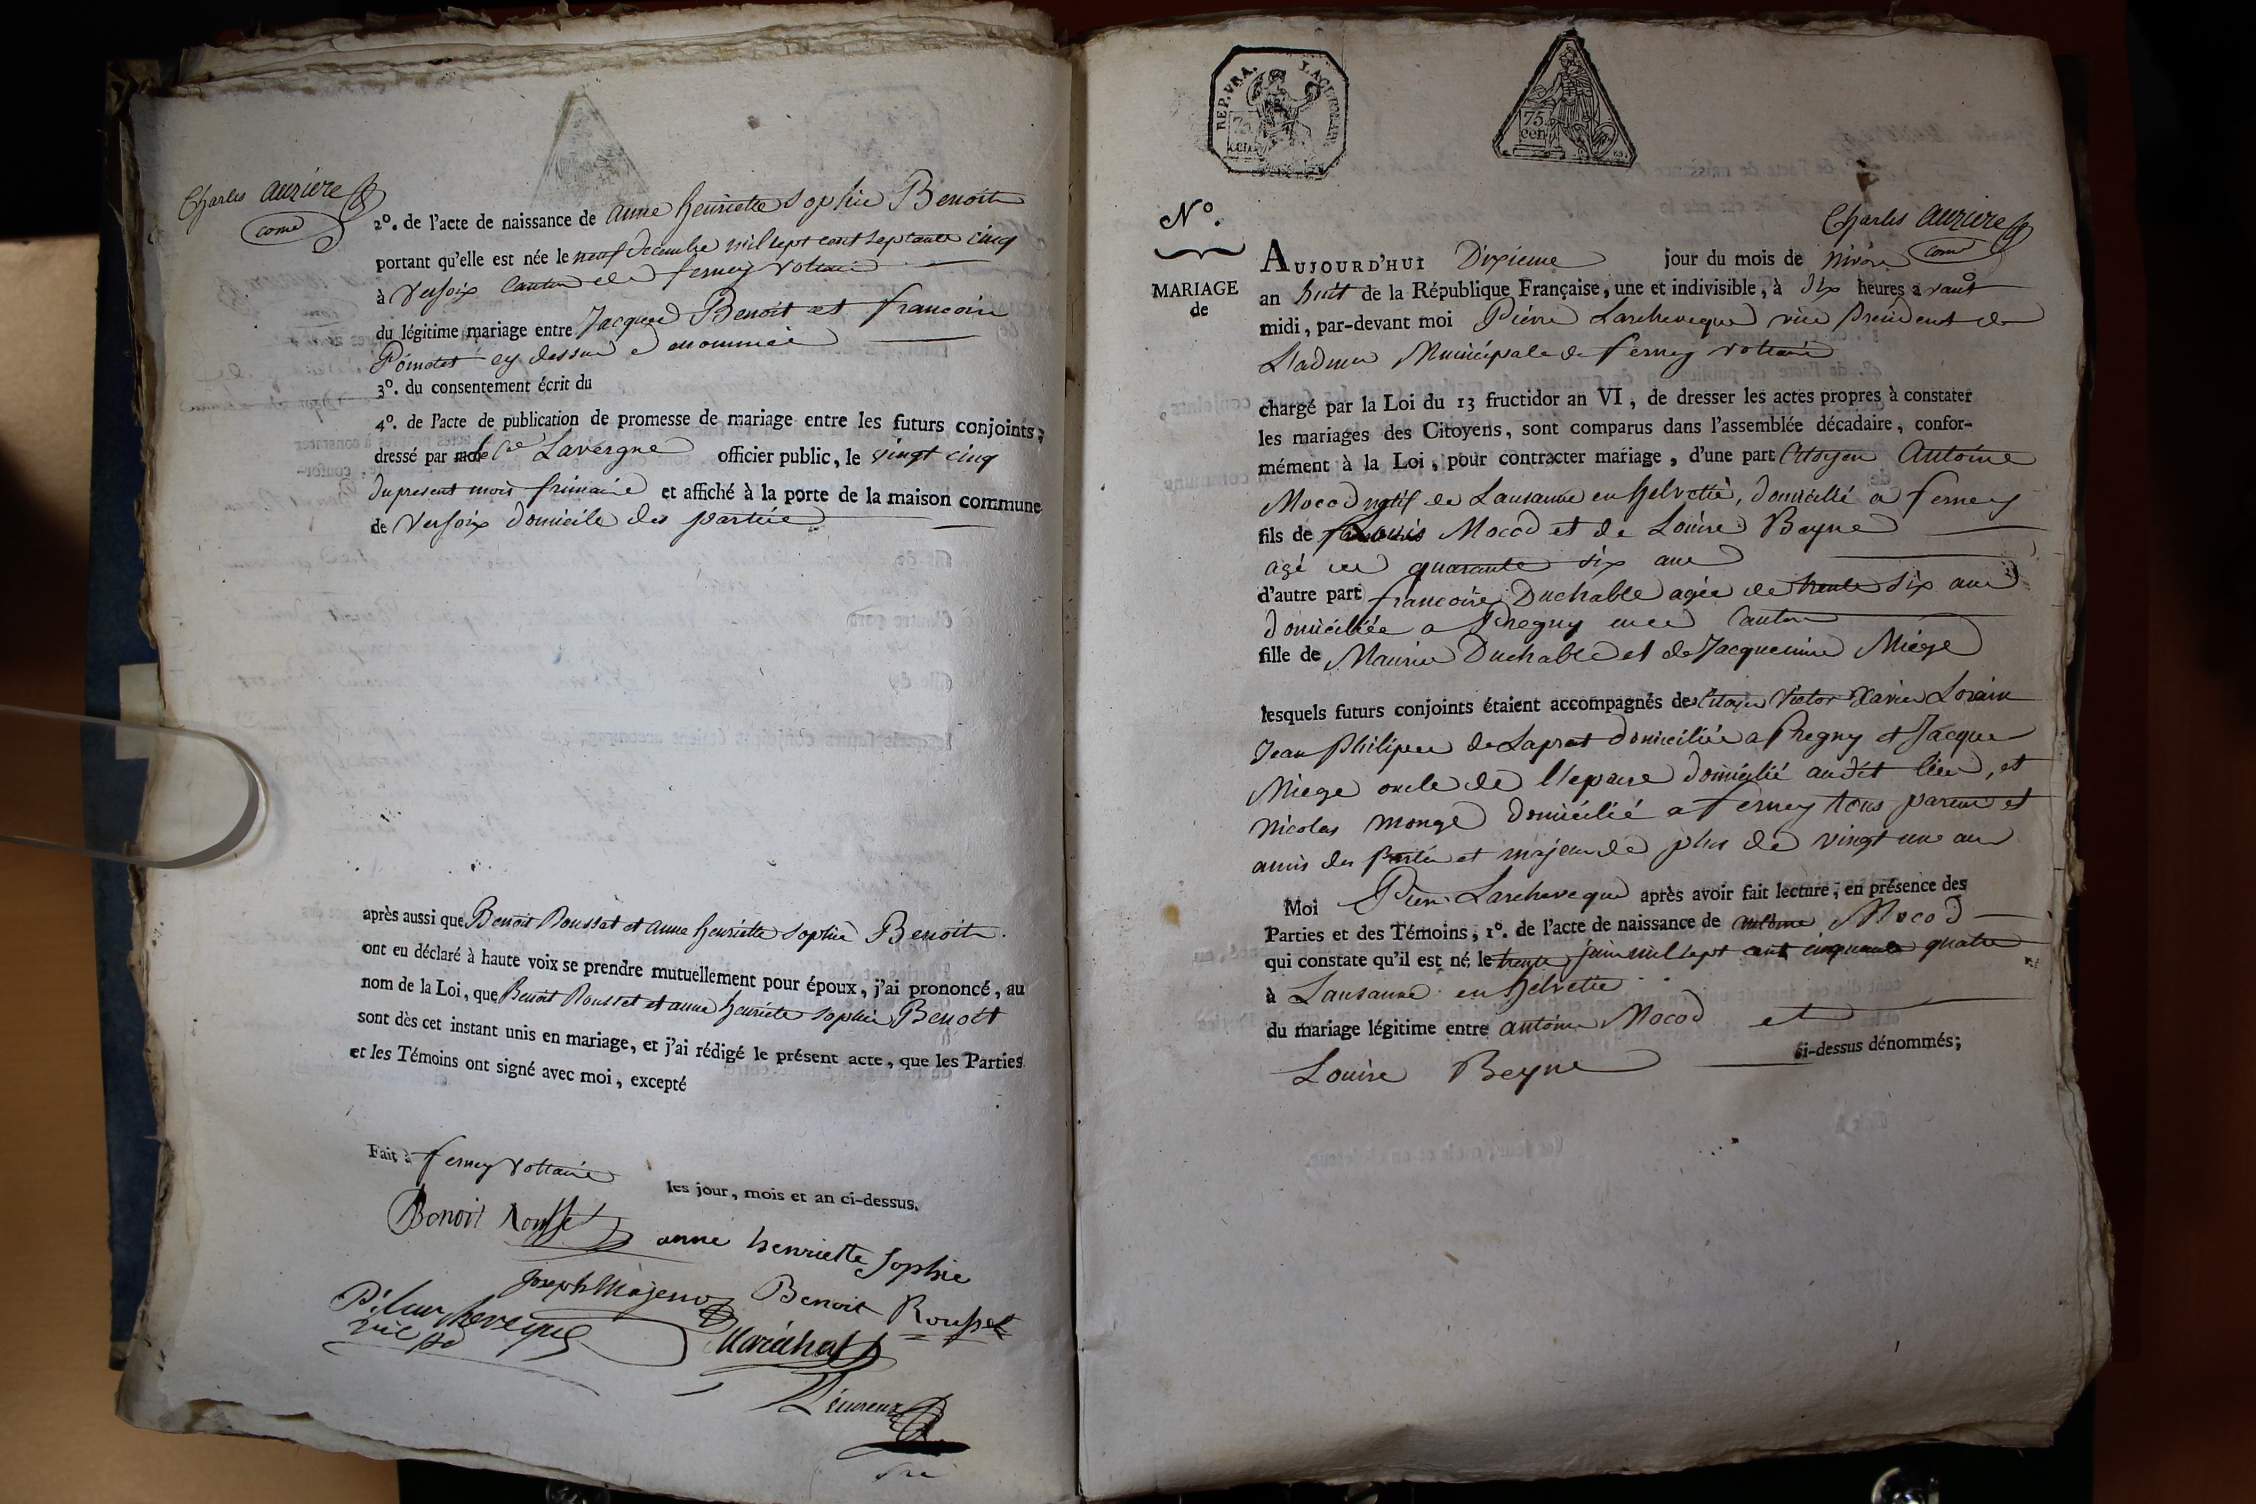 Charles auziere
come
2°. de l'acte de naissance de anne henriette Sophie Benoit
portant qu'elle est née le neuf decembre mil sept cent septante cinq
à Versoix Canton de ferney Voltaire
du légitime mariage entre Jacques Benoit et francoise
cy dessus denommée
3°. du consentement écrit du
4°. de l'acte de publication de promesse de mariage entre les futurs conjoints,
dressé par le Cen Lavergne officier public, le vingt cinq
du present mois frimaire et affiché à la porte de la maison commune
de Versoix domicile des parties
après aussi que Benoit Rousset et anne henriette Sophie Benoit.
ont eu déclaré à haute voix se prendre mutuellement pour époux, j'ai prononcé, au
nom de la Loi, que Benoit Rousset et anne henriete Sophie Benoit
sont dès cet instant unis en mariage, et j'ai rédigé le présent acte, que les Parties
et les Témoins ont signé avec moi, excepté
Fait à ferney Voltaire
les jour, mois et an ci-dessus.
Benoit Rousset
anne henriette Sophie
Benoit Rousset
Joseph
P. Larcheveque
vice pd
Maréchal
REP. FRA.
75
cen
75
cen
N°.
MARIAGE
de
Charles auziere
come
AUJOURD'HUI Dixieme jour du mois de Nivôse
an huit de la République Française, une et indivisible, à dix heures avant
midi, par-devant moi Pierre Larcheveque vice President de
L'admon Municipale de ferney Voltaire
chargé par la Loi du 13 fructidor an VI, de dresser les actes propres à constater
les mariages des Citoyens, sont comparus dans l'assemblée décadaire, confor-
mément à la Loi, pour contracter mariage, d'une part Citoyen Antoine
Mocod natif de Lausanne en helvetie, domicilié a ferney
fils de Louis Mocod et de Louise Beyne
agé de quarante six ans
d'autre part francoise Duchable agée de trente six ans
domiciliée a Pregny en ce Canton
fille de Maurice Duchable et de Jacquemine Miége
lesquels futurs conjoints étaient accompagnés des Citoyen Victor Xavier Lorain
Jean Philipe de Laprat domiciliée a Pregny et Jacque
Miege oncle de l'epouse domicilié audit lieu, et
Nicolas Monge domicilié a ferney tous parens et
amis des parties et majeurs de plus de vingt un ans
Moi Pierre Larcheveque après avoir fait lecture, en présence des
Parties et des Témoins, 1°. de l'acte de naissance de antoine Mocod
qui constate qu'il est né le trente juin mil sept cent cinquante quatre
à Lausanne en helvetie
du mariage légitime entre antoine Mocod et
Louise Beyne ci-dessus dénommés;